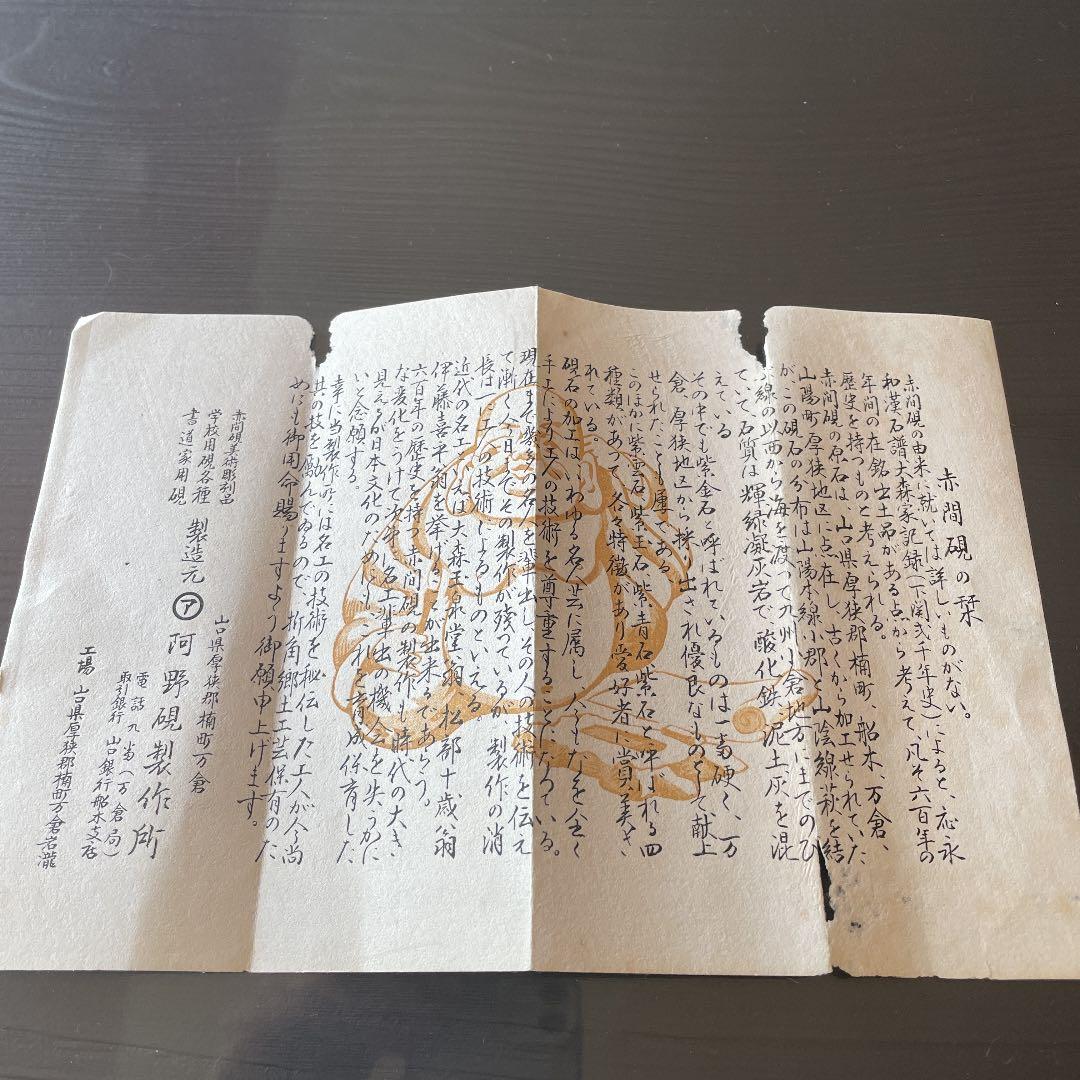 赤間硯の栞
赤間硯の由来に就いては詳しいものがない。
和漢石譜大森家記録(下関弐千年史)によると、応永
年間の在銘出土品がある点から考えて凡そ六百年の
歴史を持つものと考えられる。
赤間硯の原石は、山口県厚狭郡楠町、船木、万倉、
山陽町厚狭地区に点在し、古くから加工せられていた
が、この硯石の分布は山陽本線小郡と山陰線萩を結
ぶ線の以西から海を渡って九州小倉地方にまでのび
ていて石質は輝緑凝灰岩で、酸化鉄、泥土灰を混
えている
その中でも紫金石と呼ばれているものは一番硬く、万
倉、厚狭地区から採出され優良なものとして献上
せられたことも屡々ある
このほかに紫雲石、紫玉石、紫青石、紫石と呼ばれる四
種類があって各々特徴があり愛好者に賞美さ
れている。
硯石の加工はいわゆる名人芸に属し、今もなを全く
手工により工人の技術を尊重することになっている。
現在まで幾多の名人を輩出し、その人の技術を伝え
て漸く今日までその製作が残っているが、製作の消
長は一に工人の技術によるものといえる。
近代の名工といえば大森玉泉堂翁、松部十歳翁
伊藤喜平翁を挙げることが出来るであろう。
六百年の歴史を持つ赤間硯の製作も時代の大き
な変化をうけて次第に名工輩出の機会を失うかに
見えるが日本文化のためにもこれを育成保育した
いと念願する。
幸に当製作所には名工の技術を秘伝した工人が今尚
其の技を励んでゐるので、折角郷土工芸保有のた
めにも御用命賜りますよう御願申上げます。
赤間硯美術彫刻品
学校用硯各種
書道家用硯
製造元
山口県厚狭郡楠町万倉
㋐阿野硯製作所
電話九番(万倉局)
取引銀行 山口銀行船木支店
工場 山口県厚狭郡楠町万倉岩滝